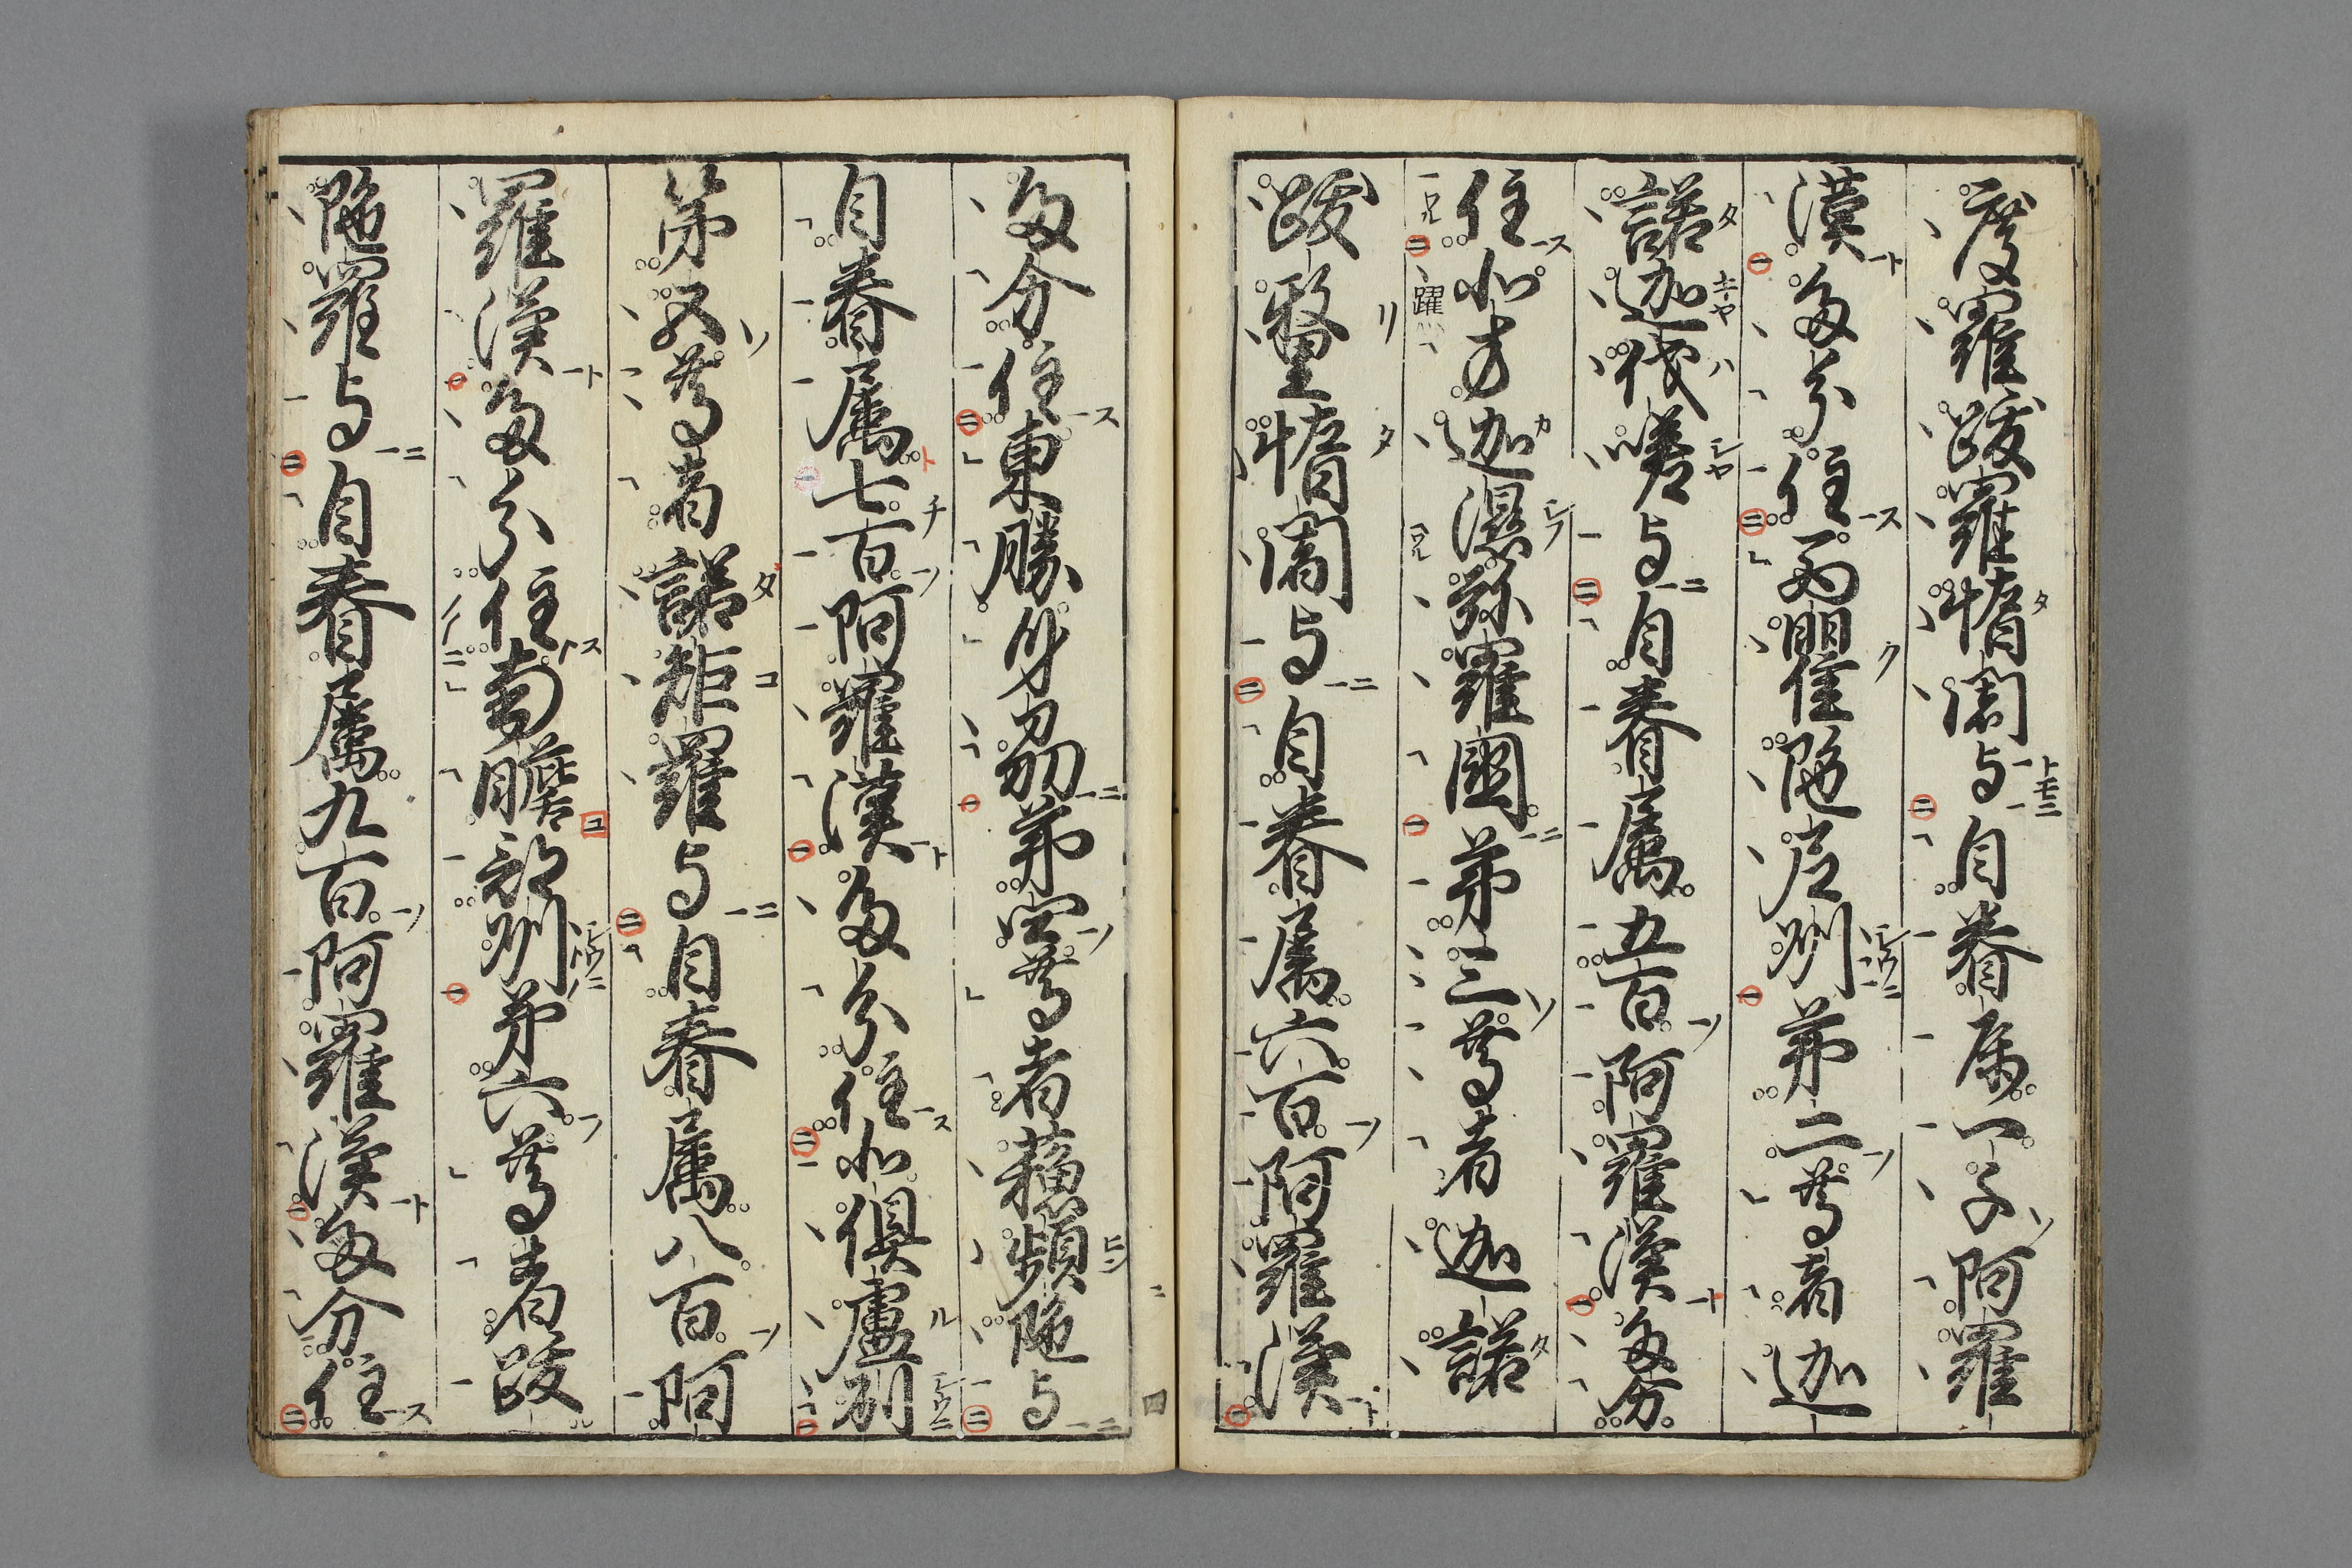 度羅跋羅惰闍与自眷属一千阿羅
漢多分住西瞿陁尼洲第二尊者迦
諾迦伐嗟与自眷属五百阿羅漢多分
住北方迦濕弥羅國第三尊者迦諾
跋釐惰闍与自眷属六百阿羅漢
多分住東勝身洲第四尊者蘓頻陁与
自眷属七百阿羅漢多分住北俱盧洲
第五尊者諾矩羅与自眷属八百阿
羅漢多分住南贍部洲第六尊者跋
陁羅与自眷属九百阿羅漢多分住